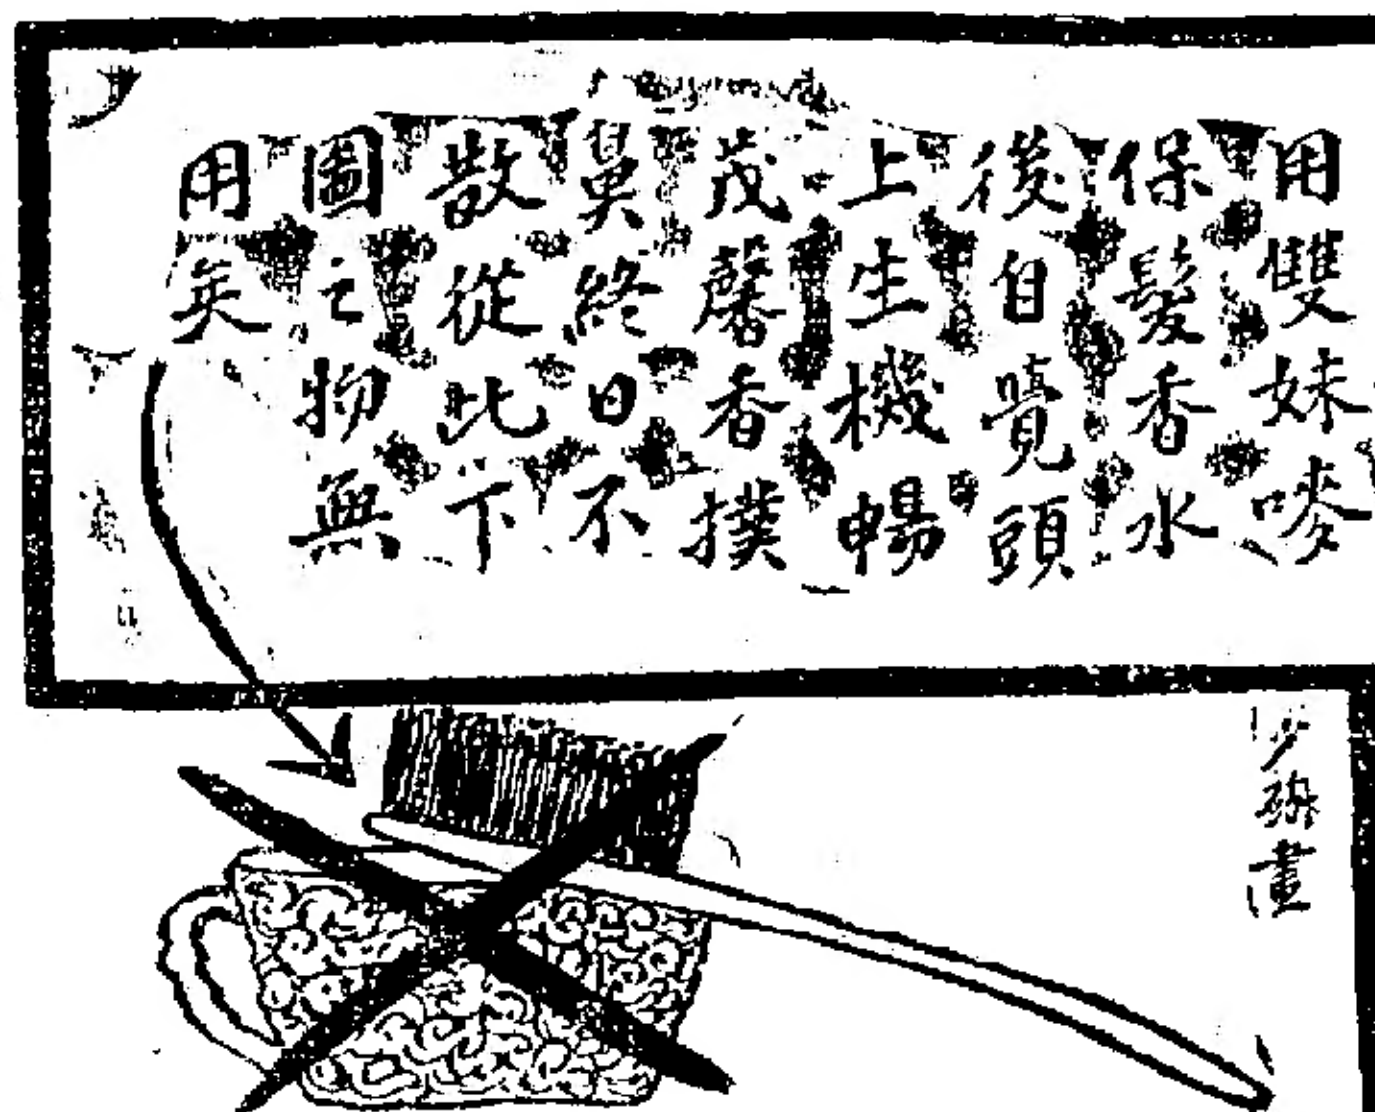 用雙妹嘜
保髮香水
後自覺頭
上生機暢
茂馨香撲
鼻終日不
散從此下
圖之物無
用矣